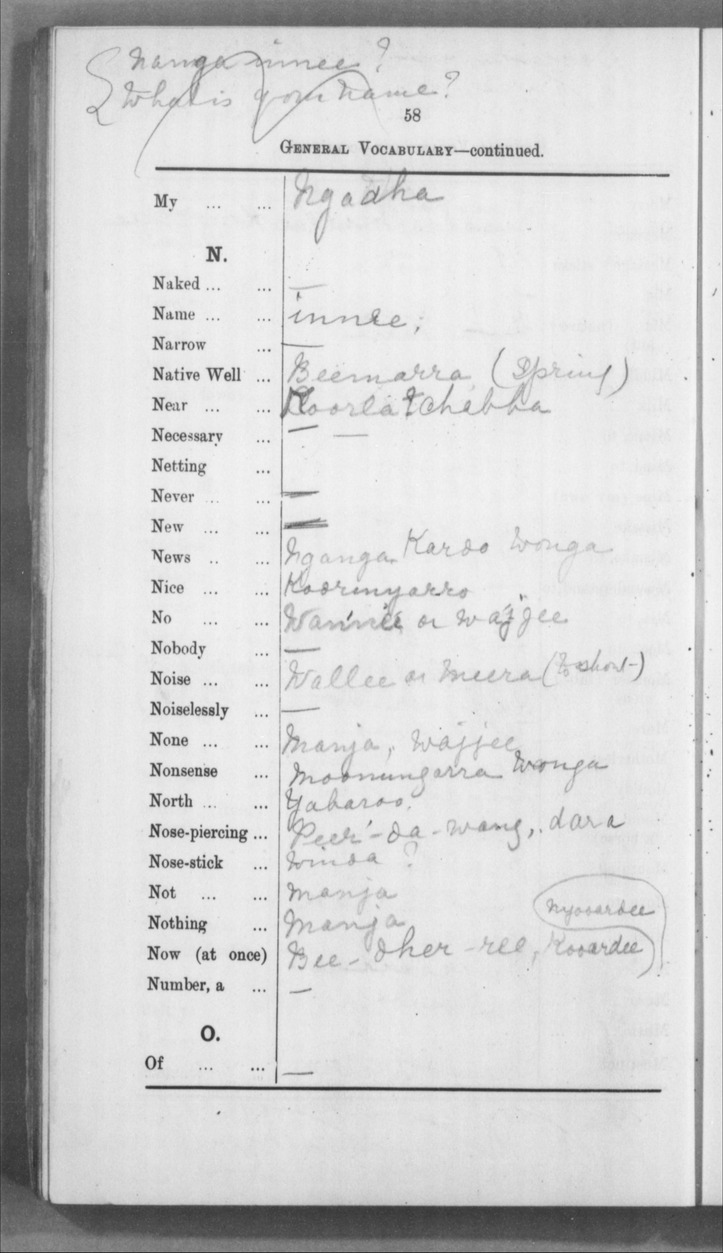 nanga innee?
What is your name?
58
GENERAL VOCABULARY—continued.
My ... ... Ngadha
N.
Naked ... ... —
Name ... ... innee;
Narrow ... —
Native Well ... Beemarra (Spring)
Near ... ... Koorla tchabba
Necessary ... — —
Netting ...
Never ... ... —
New ... ... —
News .. ... Nganga Kardo Wonga
Nice ... ... Koorinyarro
No ... ... Wannee or wajjee
Nobody ... —
Noise ... ... Wallee or meera (to shout)
Noiselessly ... —
None ... ... Manja, wajjee
Nonsense ... Moonungarra Wonga
North ... ... Yabaroo.
Nose-piercing ... Peer'-da-wang, dara
Nose-stick ... Winda ?
Not ... ... Manja
Nothing ... Manja nyooardee
Now (at once) Bee-dher-ree, Kooardee
Number, a ... —
O.
Of ... ... —